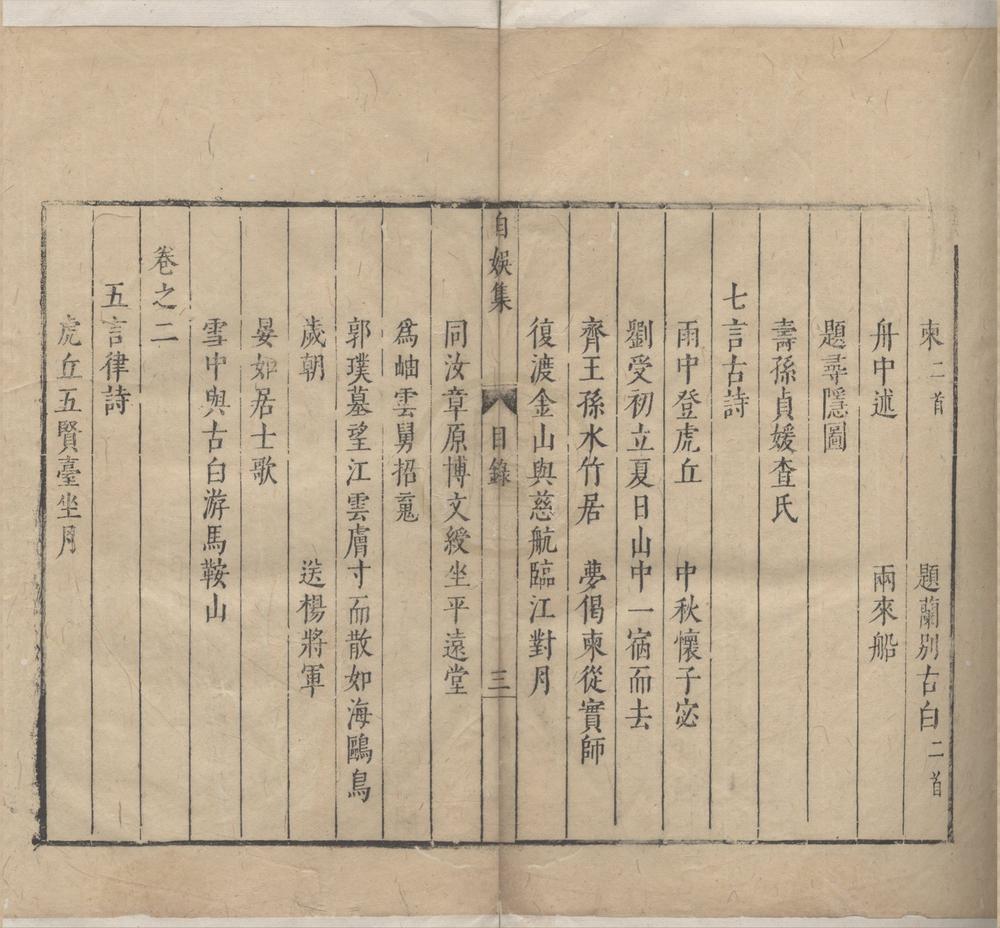 柬二首　題蘭別古白二首
舟中述　兩來船
題尋隱圖
壽孫貞媛查氏
七言古詩
雨中登虎丘　中秋懷子宓
劉受初立夏日山中一宿而去
齊王孫水竹居　夢偈柬從實師
復渡金山與慈航臨江對月
自娛集　目錄　三
同汝章原博文綬坐平遠堂
為岫雲舅招䰟
郭璞墓望江雲膚寸而散如海鷗鳥
歲朝　送楊將軍
晏如居士歌
雪中與古白游馬鞍山
卷之二
五言律詩
虎丘五賢臺坐月